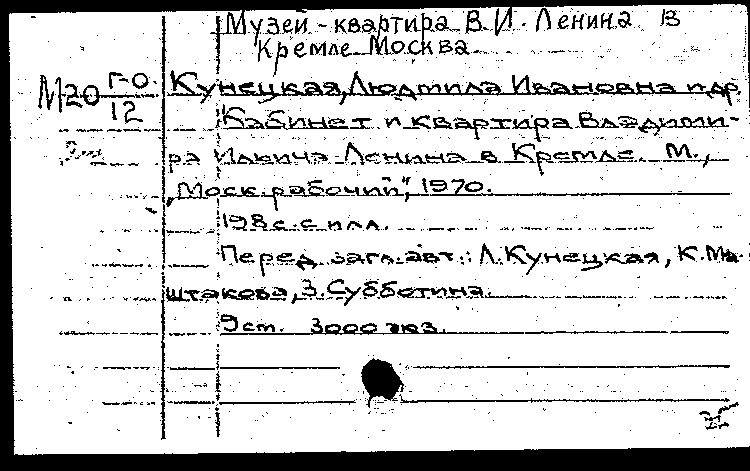 Музей-квартира В.И. Ленина в
Кремле. Москва
М20 Г-0
12
Кунецкая, Людмила Ивановна и др.
Кабинет и квартира Владими-
ра Ильича Ленина в Кремле. М.,
„Моск. рабочий", 1970.
198 с. с илл.
Перед загл. авт.: Л. Кунецкая, К. Ма-
штакова, З. Субботина.
Эст. 3000 экз.